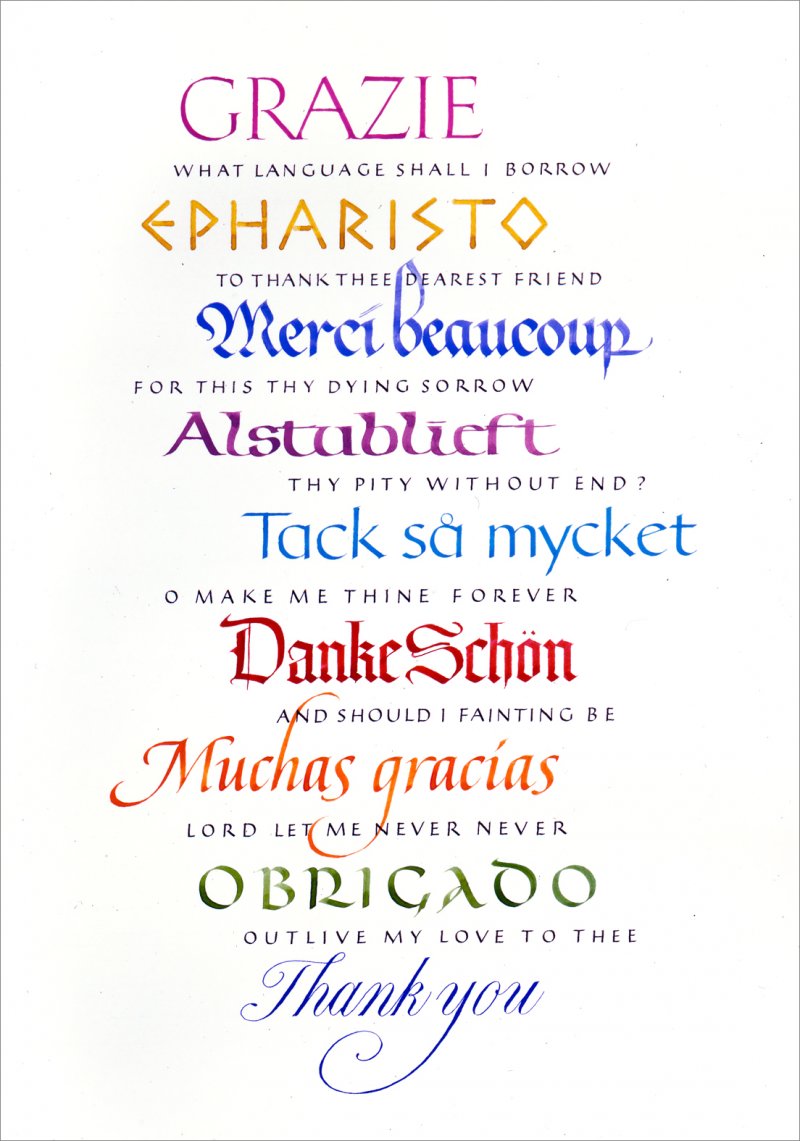 GRAZIE
WHAT LANGUAGE SHALL I BORROW
EPHARISTO
TO THANK THEE DEAREST FRIEND
Merci beaucoup
FOR THIS THY DYING SORROW
Alstublieft
THY PITY WITHOUT END?
Tack så mycket
O MAKE ME THINE FOREVER
Danke Schön
AND SHOULD I FAINTING BE
Muchas gracias
LORD LET ME NEVER NEVER
OBRIGADO
OUTLIVE MY LOVE TO THEE
Thank you